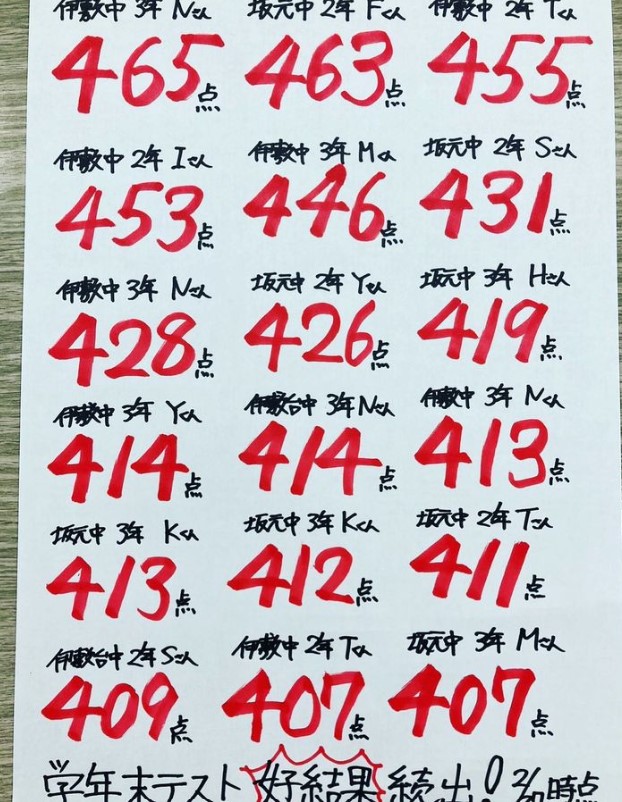 伊敷中 3年 Nさん 坂元中 2年 Fさん 伊敷中 2年 Tさん
465点 463点 455点
伊敷中 2年 Iさん 伊敷中 3年 Mさん 坂元中 2年 Sさん
453点 446点 431点
伊敷中 3年 Nさん 坂元中 2年 Yさん 坂元中 3年 Hさん
428点 426点 419点
伊敷中 3年 Yさん 伊敷台中 3年 Nさん 伊敷中 3年 Nさん
414点 414点 413点
坂元中 3年 Kさん 坂元中 3年 Kさん 坂元中 2年 Tさん
413点 412点 411点
伊敷台中 2年 Sさん 伊敷中 2年 Tさん 坂元中 3年 Mさん
409点 407点 407点
学年末テスト 好結果 続出! 時点